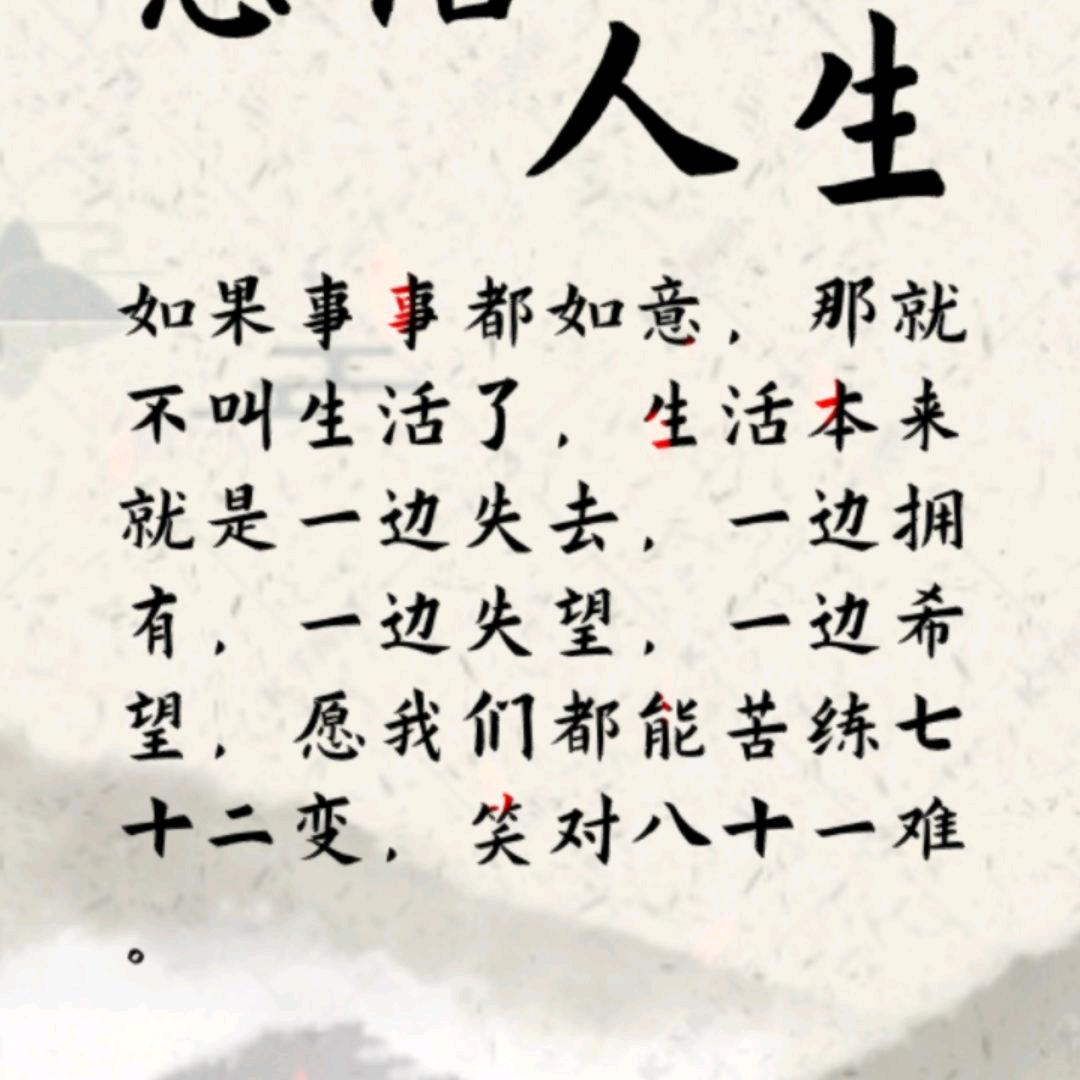 人生
如果事事都如意，那就
不叫生活了，生活本来
就是一边失去，一边拥
有，一边失望，一边希
望，愿我们都能苦练七
十二变，笑对八十一难
。